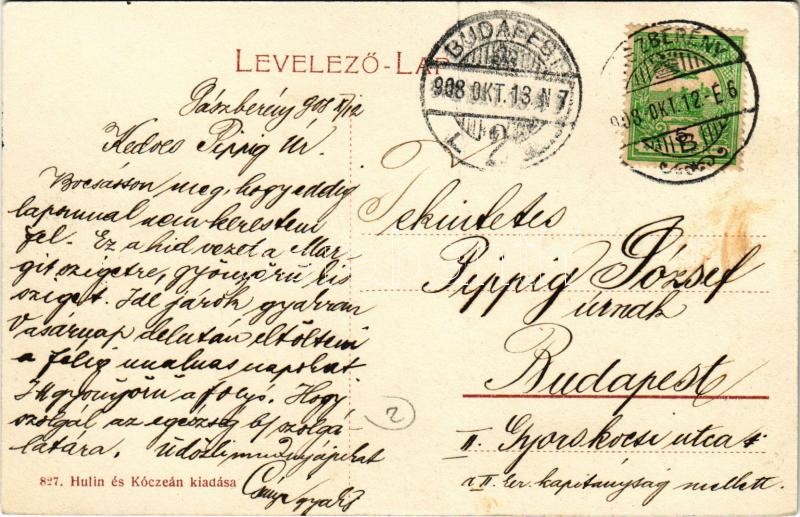 LEVELEZŐ-LAP
BUDAPEST
908 OKT. 13. N 7
2
ZBERÉNY
908. OKT. 12. E 6
B
Jászberény 908 X/12
Kedves Pippig Úr.
Bocsásson meg, hogy eddig
lapommal nem kerestem
fel. Ez a hid vezet a Mar-
git szigetre, gyönyörű kis
sziget. Ide járok gyakran
Vasárnap délután eltölteni
a félig unalmas napokat
Itt gyönyörű a folyó. Hogy
szolgál az egészség b/ szolgá-
latára. Üdözli
Tekintetes
Pippig József
úrnak
Budapest
II. Gyorskocsi utca
a II. ker. kapitányság mellett.
2
827. Hulin és Kóczeán kiadása